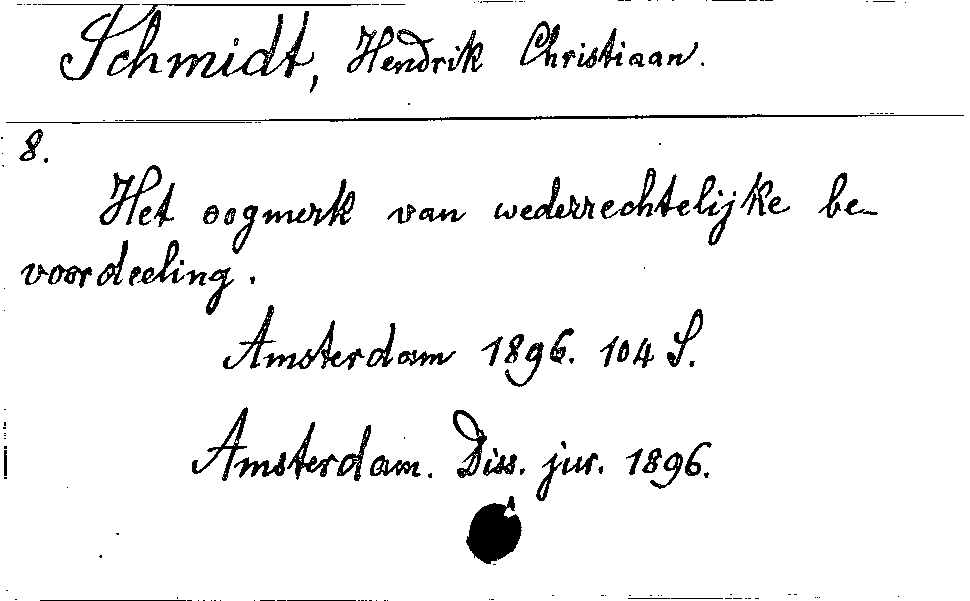 Schmidt, Hendrik Christiaan.
8.
Het oogmerk van wederrechtelijke be-
voordeeling.
Amsterdam 1896. 104 S.
Amsterdam. Diss. jur. 1896.